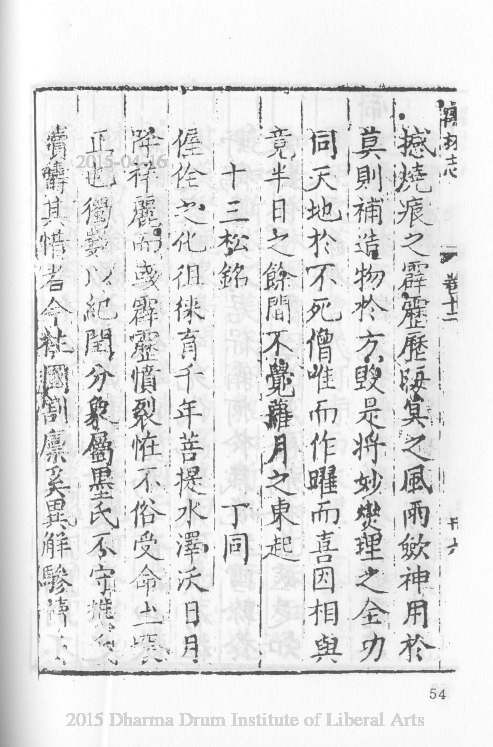 卷十二
撼燒痕之霹靂歷晦冥之風雨斂神用於
莫則補造物於方毀是將妙燮理之全功
同天地於不死僧唯而作躍而喜因相與
竟半日之餘間不覺蘿月之東起
十三松銘 丁同
偓佺之化徂徠育千年菩提水澤沃日月
降祥麗而或霹靂憤裂恠不俗受命土
正也獨 以紀閏分 墨氏不守
其惜者今社國割 異解驂
54
2015-04-16
2015 Dharma Drum Institute of Liberal Arts